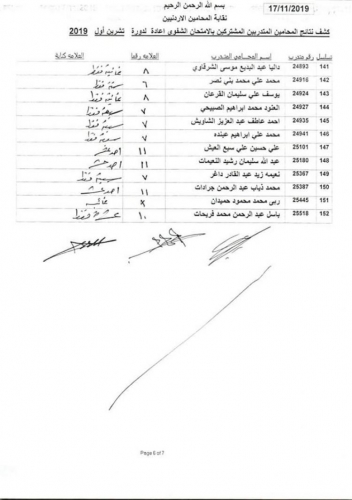 بسم الله الرحمن الرحيم
نقابة المحامين الاردنيين
17/11/2019
كشف نتائج المحامين المتدربين المشتركين بالامتحان الشفوي اعادة لدورة تشرين أول 2019
تسلسل رقم متدرب اسم المحامي المتدرب العلامة رقما العلامة كتابة
141 24893 داليا عبد البديع موسى الشرقاوي ٨ ثمانية فقط
142 24916 محمد علي محمد بني نصر ٦ ستة فقط
143 24924 يوسف علي سليمان القرعان ٨ ثمانية فقط
144 24934 العنود محمد ابراهيم الصبيحي ٧ سبعة فقط
145 24935 احمد عاطف عبد العزيز الشاويش ٧ سبعة فقط
146 24941 محمد علي ابراهيم عبنده ٧ سبعة فقط
147 25101 علي حسين علي سبع العيش ١١ احد عشر
148 25180 عبد الله سليمان رشيد النعيمات ١١ احد عشر
149 25367 نعيمه زيد عبد القادر داغر ٧ سبعة فقط
150 25387 محمد ذياب عبد الرحمن جرادات ١١ احد عشر
151 25445 ربى محمد محمود حميدان غائب
152 25518 باسل عبد الرحمن محمد فريحات ١٠ عشرة فقط
Page 6 of 7